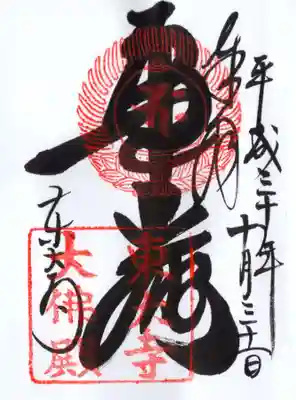 平成三十年十月三十一日
奉拝
華厳
東大寺
東大寺
大佛殿